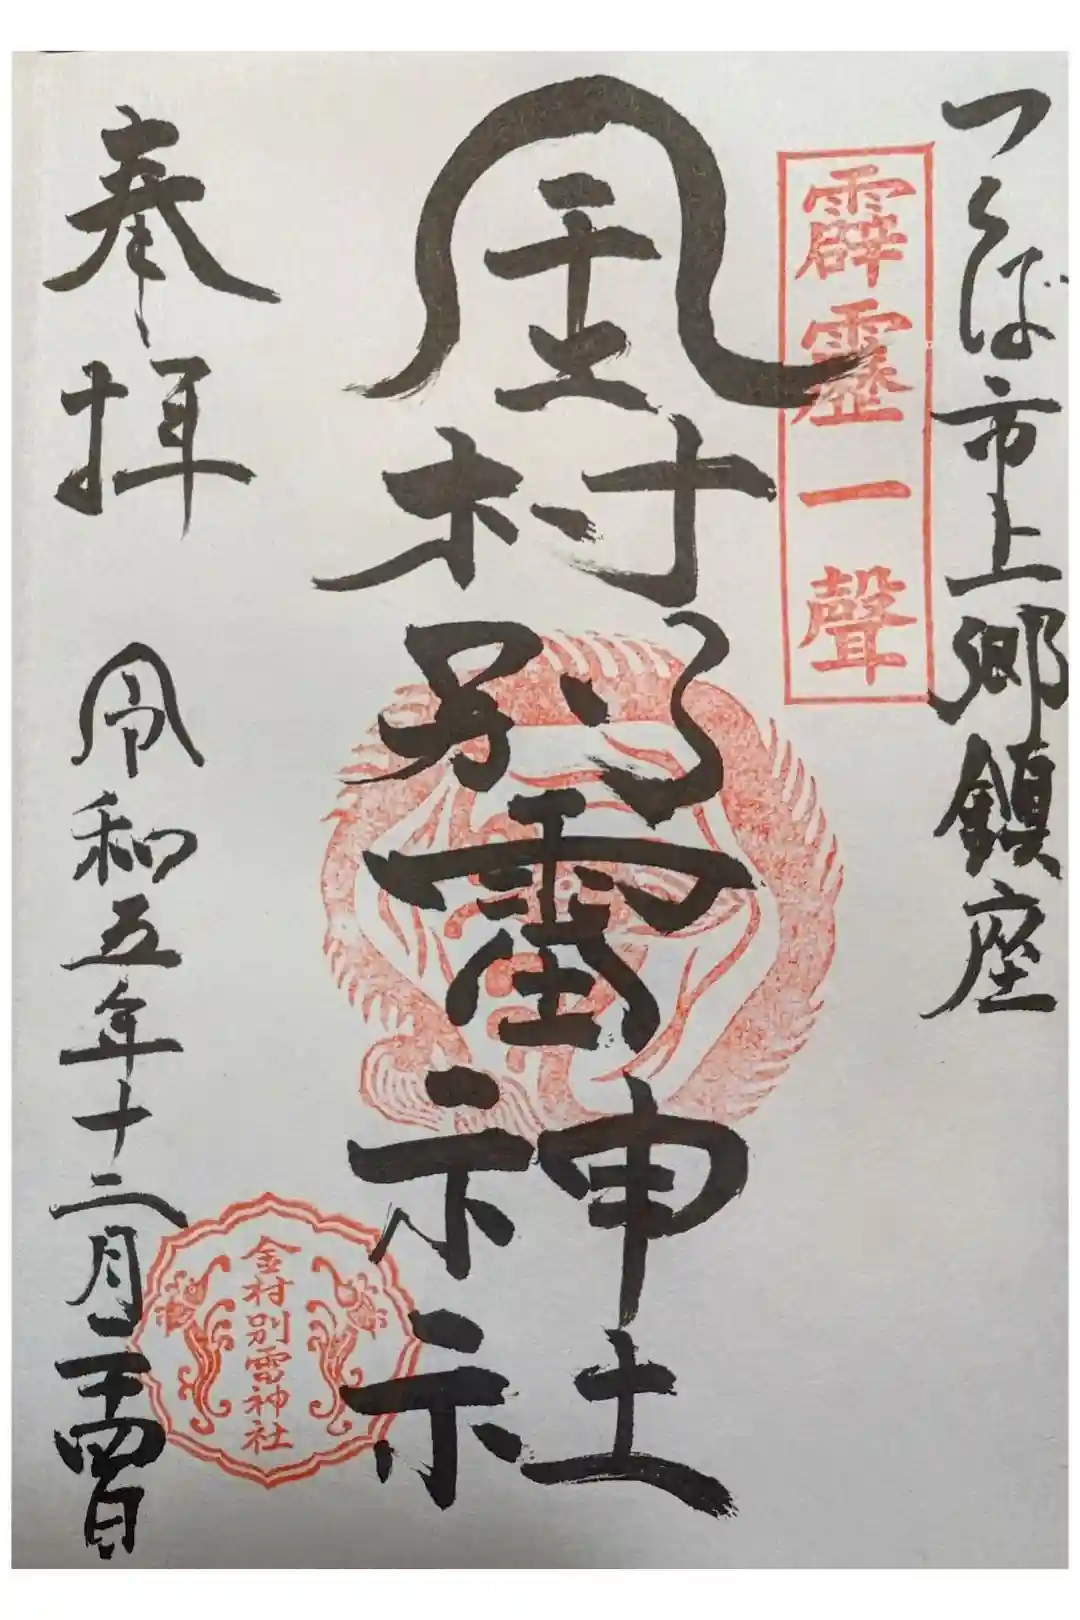 つくば市上郷鎮座
霹靂一聲
金村別雷神社
奉拝
令和五年十二月二十四日
金村別雷神社